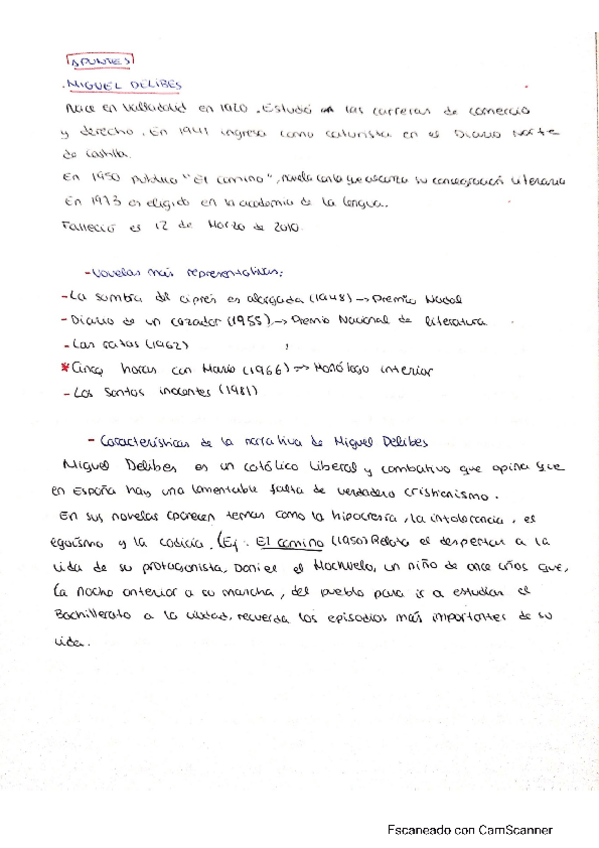 APUNTES
. MIGUEL DELIBES
Nace en Valladolid en 1920. Estudió las carreras de comercio
y derecho. En 1941 ingresa como caturista en el Diario Norte
de Castilla.
En 1950 publica "El camino", novela con la que alcanza su consagración literaria
En 1973 es eligido en la academia de la lengua.
Falleció el 12 de Marzo de 2010.
- Novelas más representativas:
- La sombra del ciprés es alargada (1948) → Premio Nadal
- Diario de un cazador (1955) → Premio Nacional de literatura
- Las ratas (1962)
* Cinco horas con Mario (1966) → Monólogo interior
- Los Santos inocentes (1981)
- Características de la narrativa de Miguel Delibes
Miguel Delibes es un católico liberal y combativo que opina que
en España hay una lamentable falta de verdadero cristianismo.
En sus novelas aparecen temas como la hipocresía, la intolerancia, el
egoísmo y la codicia. (Ej: El camino (1950) Relata el despertar a la
vida de su protagonista, Daniel el Mochuelo, un niño de once años que,
la noche anterior a su marcha, del pueblo para ir a estudiar el
Bachillerato a la ciudad, recuerda los episodios más importantes de su
vida.
Escaneado con CamScanner